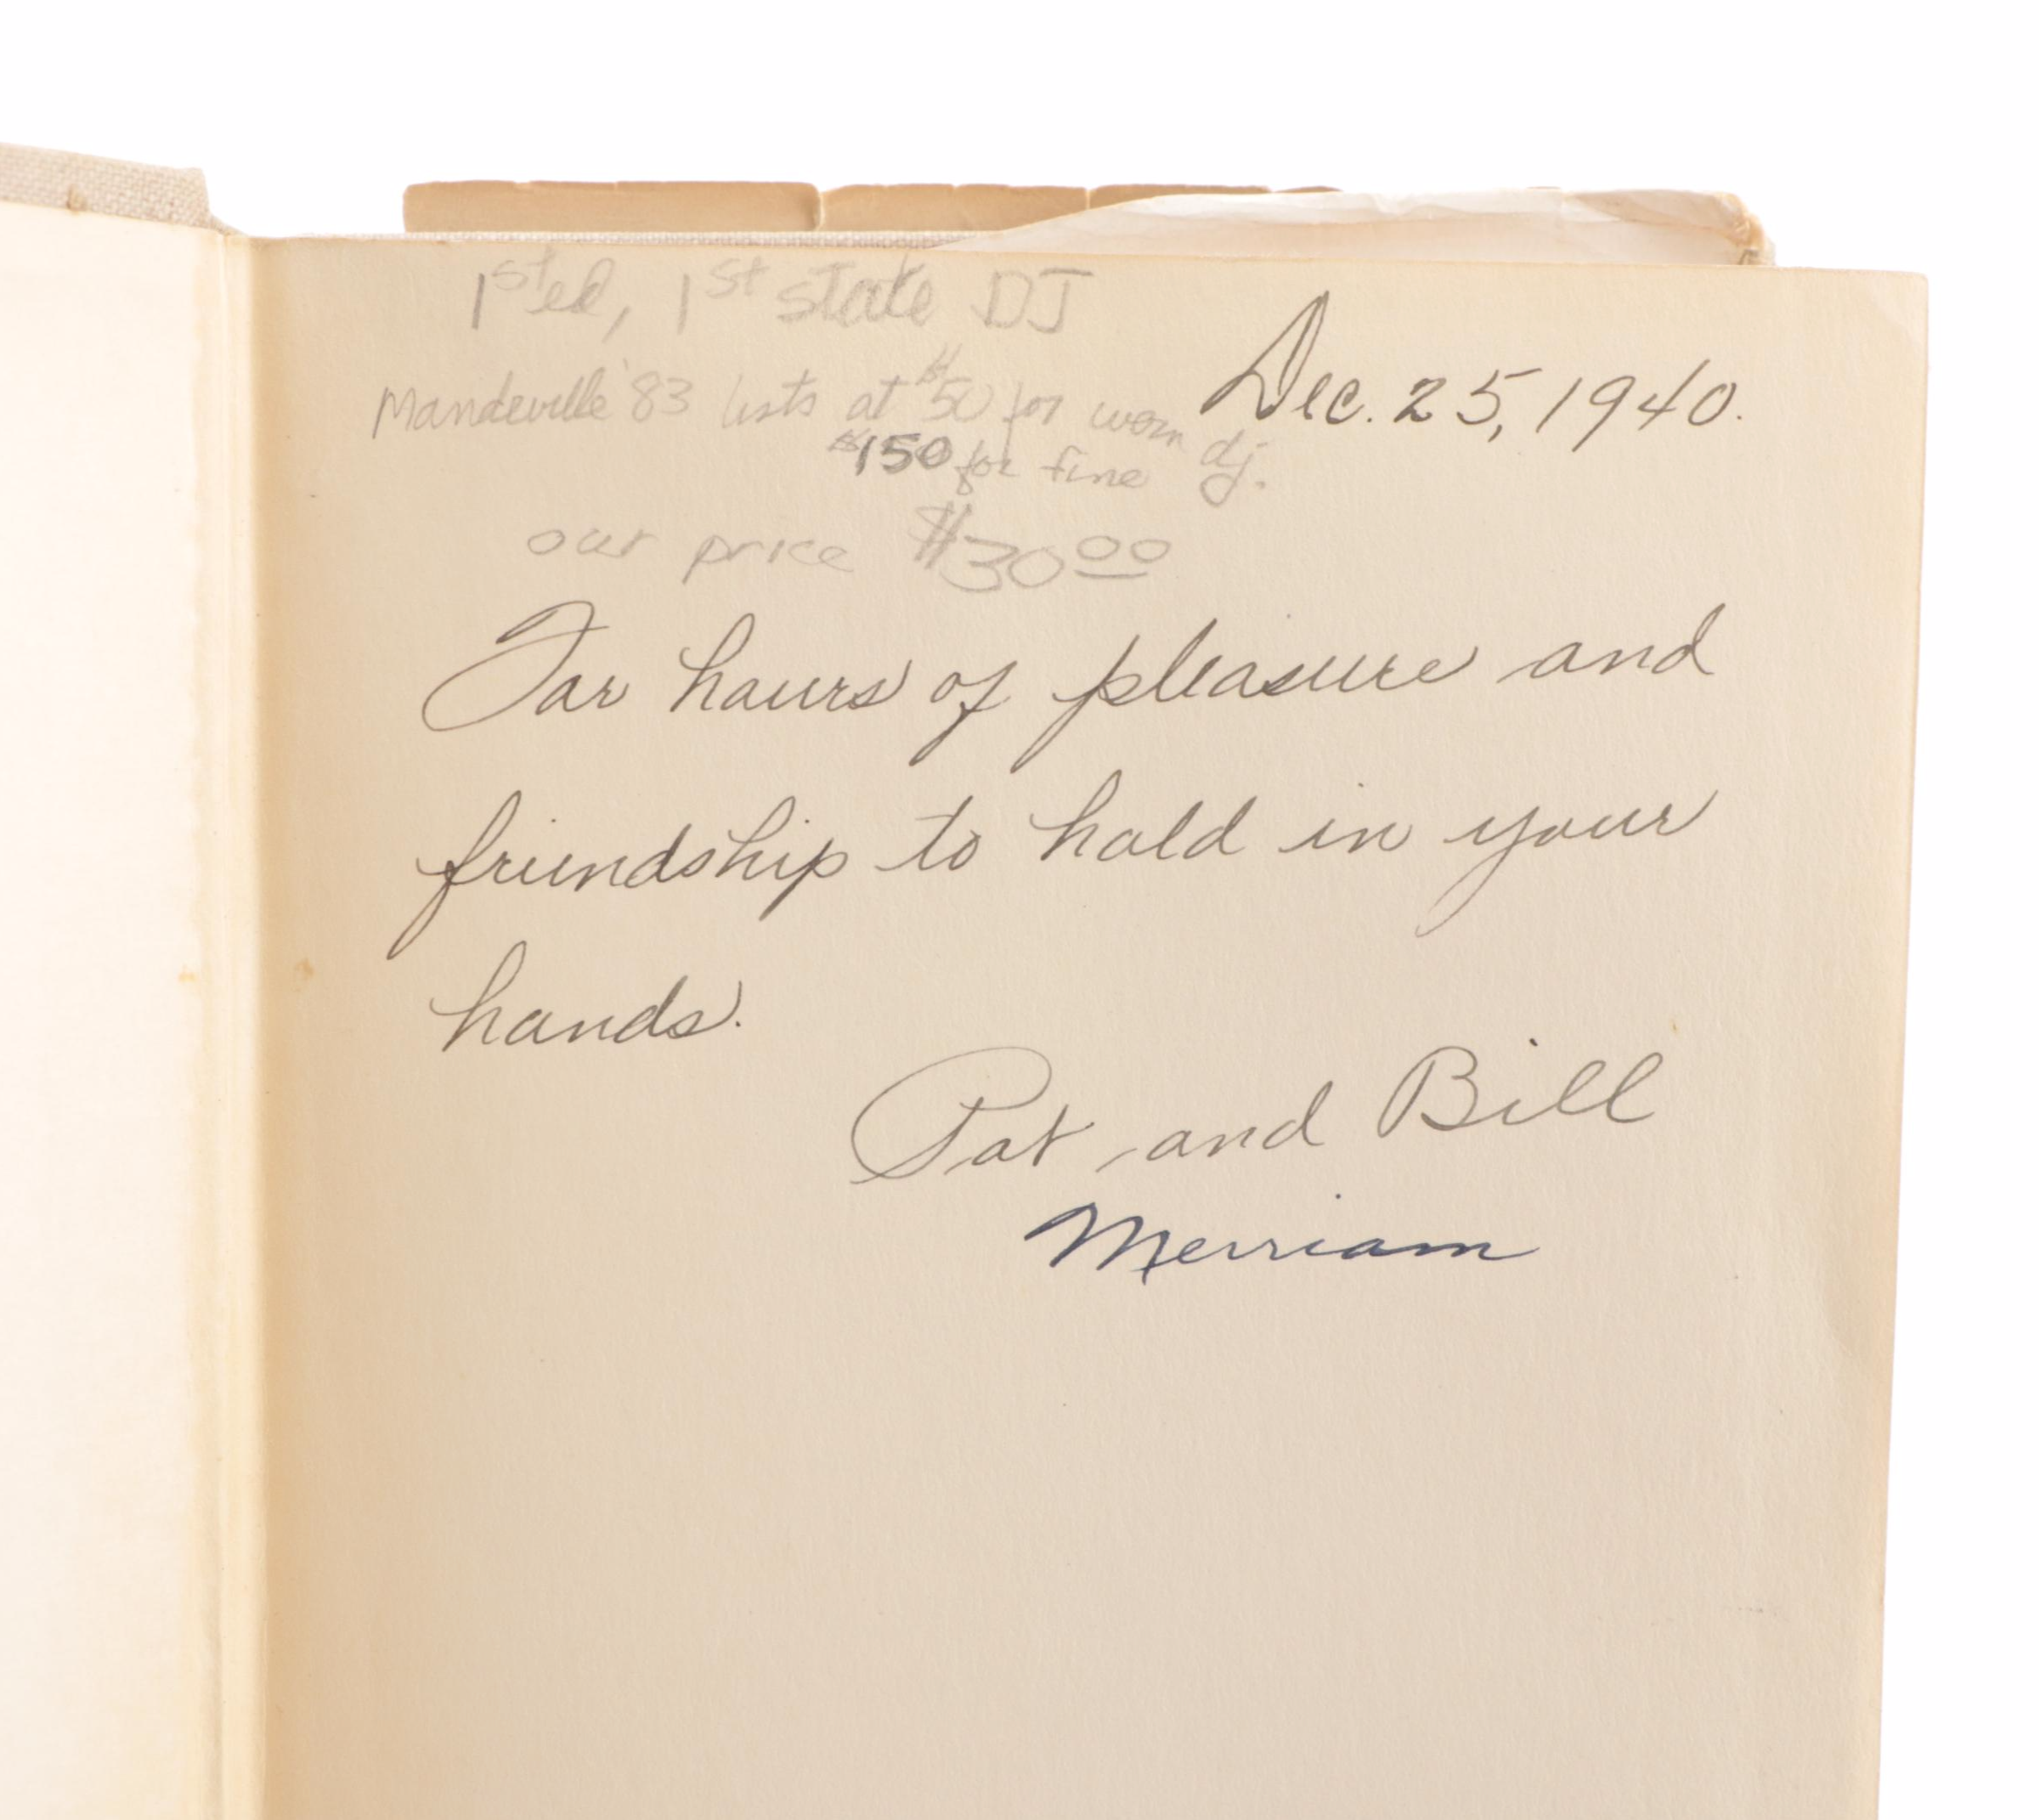 1st ed, 1st state DJ
Dec. 25, 1940.
Mandeville '83 lists at $50 for worn dj.
$150 for fine
our price $30.00
For hours of pleasure and
friendship to hold in your
hands.
Pat and Bill
Merriam